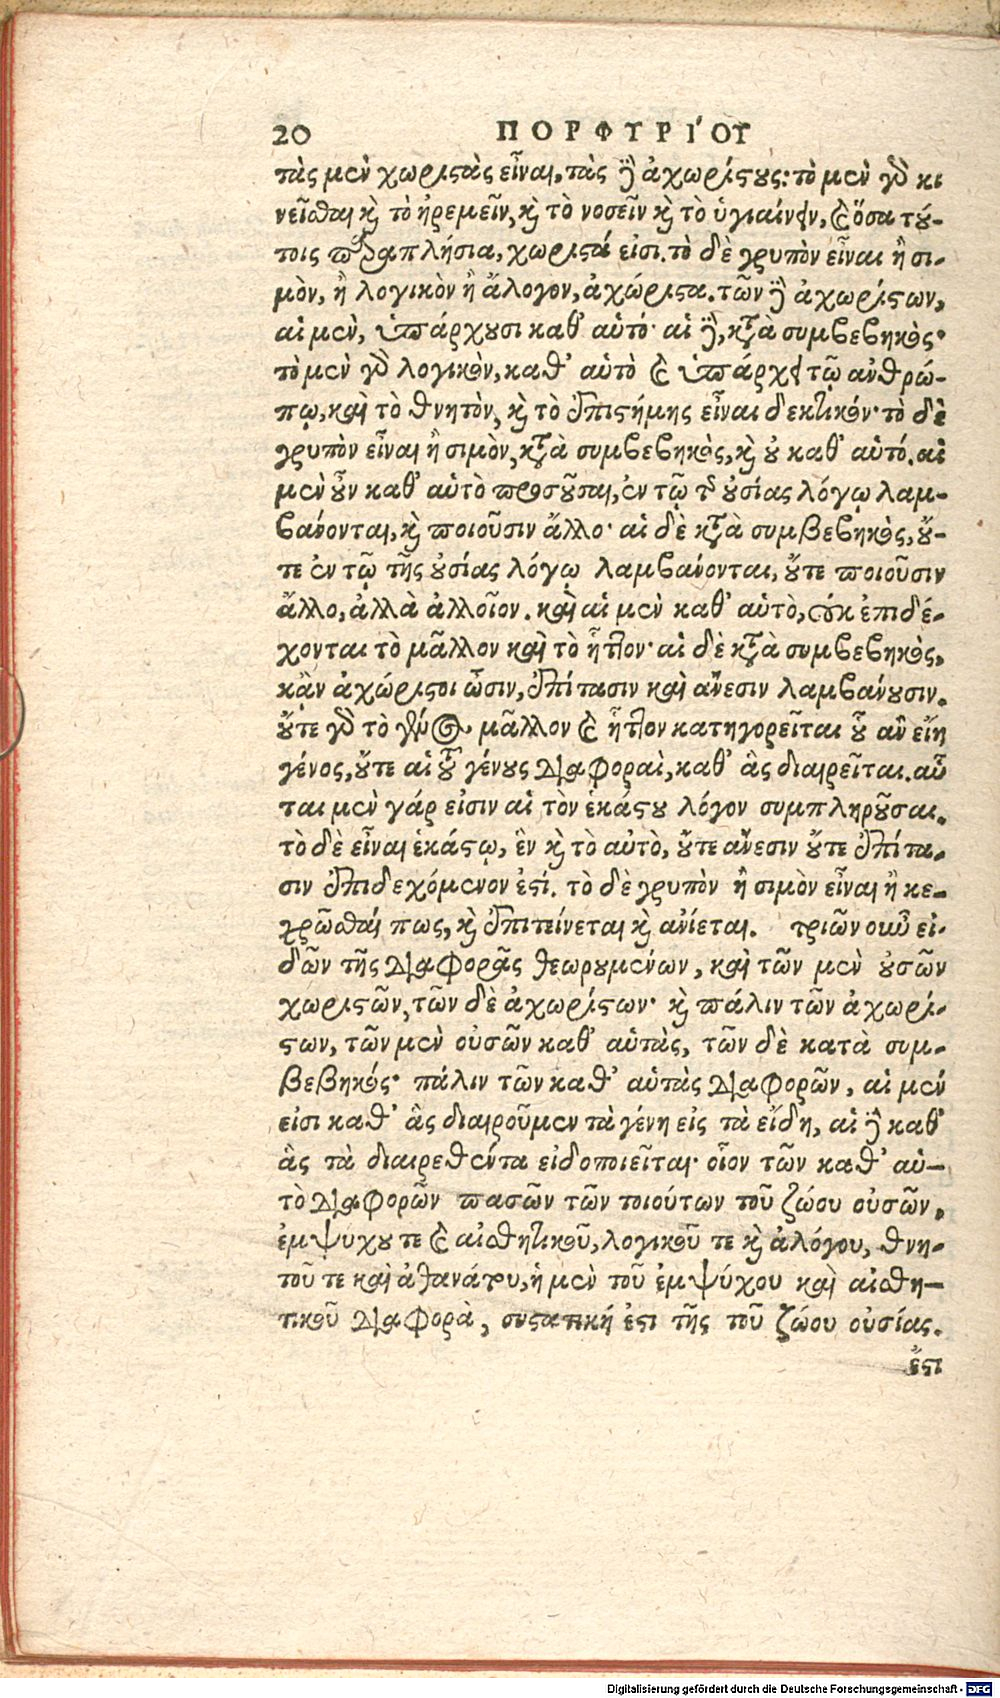 20 ΠΟΡΦΥΡΙ΄ΟΥ
τὰς μὲν χωριστὰς εἶναι, τὰς δὲ ἀχωρίστους: τὸ μὲν γὰρ κι
νεῖσθαι καὶ τὸ ἠρεμεῖν, καὶ τὸ νοσεῖν καὶ τὸ ὑγιαίνειν, καὶ ὅσα τού-
τοις παραπλήσια, χωριστά εἰσι. τὸ δὲ γρυπὸν εἶναι ἢ σι-
μὸν, ἢ λογικὸν ἢ ἄλογον, ἀχώριστα. τῶν δὲ ἀχωρίστων,
αἱ μὲν, ὑπάρχουσι καθ' αὑτό· αἱ δὲ, κατὰ συμβεβηκός·
τὸ μὲν γὰρ λογικὸν, καθ' αὑτὸ καὶ ὑπάρχει τῷ ἀνθρώ-
πῳ, καὶ τὸ θνητὸν, καὶ τὸ ἐπιστήμης εἶναι δεκτικόν· τὸ δὲ
γρυπὸν εἶναι ἢ σιμὸν, κατὰ συμβεβηκὸς, καὶ οὐ καθ' αὑτό. αἱ
μὲν οὖν καθ' αὑτὸ προσοῦσαι, ἐν τῷ τῆς οὐσίας λόγῳ λαμ-
βάνονται, καὶ ποιοῦσιν ἄλλο· αἱ δὲ κατὰ συμβεβηκὸς, οὔ-
τε ἐν τῷ τῆς οὐσίας λόγῳ λαμβάνονται, οὔτε ποιοῦσιν
ἄλλο, ἀλλὰ ἀλλοῖον. καὶ αἱ μὲν καθ' αὑτὸ, οὐκ ἐπιδέ-
χονται τὸ μᾶλλον καὶ τὸ ἧττον· αἱ δὲ κατὰ συμβεβηκὸς,
κἂν ἀχώριστοι ὦσιν, ἐπίτασιν καὶ ἄνεσιν λαμβάνουσιν.
οὔτε γὰρ τὸ γένος μᾶλλον καὶ ἧττον κατηγορεῖται οὗ ἂν εἴη
γένος, οὔτε αἱ τοῦ γένους διαφοραὶ, καθ' ἃς διαιρεῖται. αὗ
ται μὲν γάρ εἰσιν αἱ τὸν ἑκάστου λόγον συμπληροῦσαι.
τὸ δὲ εἶναι ἑκάστῳ, ἓν καὶ τὸ αὐτὸ, οὔτε ἄνεσιν οὔτε ἐπίτα-
σιν ἐπιδεχόμενον ἐστί. τὸ δὲ γρυπὸν ἢ σιμὸν εἶναι ἢ κε-
χρῶσθαί πως, καὶ ἐπιτείνεται καὶ ἀνίεται. τριῶν οὖν εἰ-
δῶν τῆς διαφορᾶς θεωρουμένων, καὶ τῶν μὲν οὐσῶν
χωριστῶν, τῶν δὲ ἀχωρίστων· καὶ πάλιν τῶν ἀχωρί-
στων, τῶν μὲν οὐσῶν καθ' αὑτὰς, τῶν δὲ κατὰ συμ-
βεβηκός· πάλιν τῶν καθ' αὑτὰς διαφορῶν, αἱ μέν
εἰσι καθ' ἃς διαιροῦμεν τὰ γένη εἰς τὰ εἴδη, αἱ δὲ καθ'
ἃς τὰ διαιρεθέντα εἰδοποιεῖται· οἷον τῶν καθ' αὑ-
τὸ διαφορῶν πασῶν τῶν τοιούτων τοῦ ζώου οὐσῶν,
ἐμψύχου τε καὶ αἰσθητικοῦ, λογικοῦ τε καὶ ἀλόγου, θνη-
τοῦ τε καὶ ἀθανάτου, ἡ μὲν τοῦ ἐμψύχου καὶ αἰσθη-
τικοῦ διαφορὰ, συστατική ἐστι τῆς τοῦ ζώου οὐσίας.
ἔστι
Digitalisierung gefördert durch die Deutsche Forschungsgemeinschaft - DFG